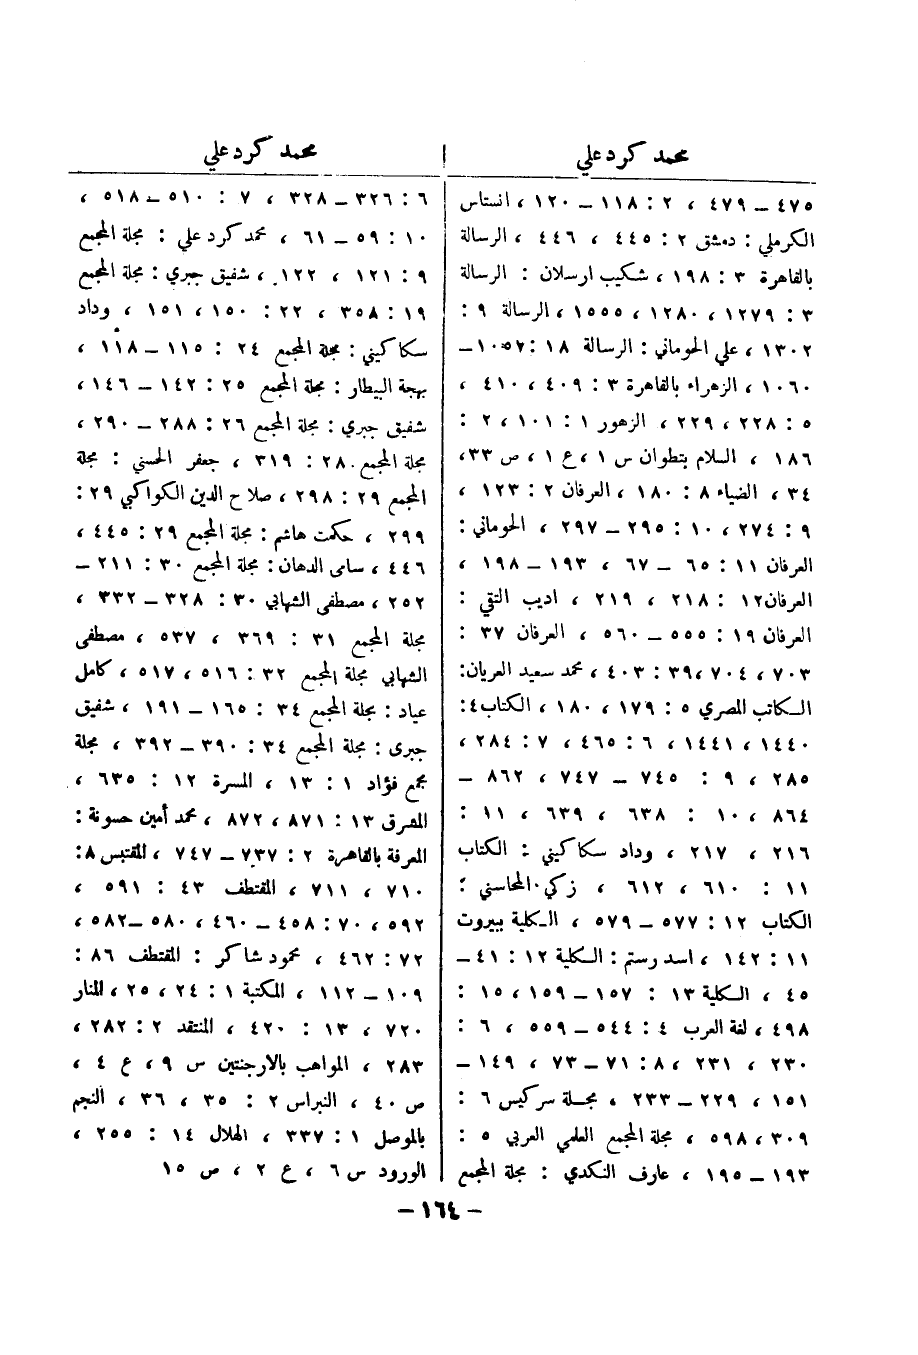 محمد كرد علي
٤٧٥ ــ ٤٧٩ ، ٢ : ١١٨ ــ ١٢٠ ، انستاس
الكرملي : دمشق ٢ : ٤٤٥ ، ٤٤٦ ، الرسالة
بالقاهرة ٣ : ١٩٨ ، شكيب ارسلان : الرسالة
٣ : ١٢٧٩ ، ١٢٨٠ ، ١٥٥٥ ، الرسالة ٩ :
١٣٠٢ ، علي الحوماني : الرسالة ١٨ : ١٠٥٢ــ
١٠٦٠ ، الزهراء بالقاهرة ٣ : ٤٠٩ ، ٤١٠ ،
٥ : ٢٢٨ ، ٢٢٩ ، الزهور ١ : ١٠١ ، ٢ :
١٨٦ ، السلام بتطوان س ١ ، ع ١ ، ص ٣٣ ،
٣٤ ، الضياء ٨ : ١٨٠ ، العرفان ٢ : ١٢٣ ،
٩ : ٢٧٤ ، ١٠ : ٢٩٥ ــ ٢٩٧ ، الحوماني :
العرفان ١١ : ٦٥ ــ ٦٧ ، ١٩٣ ــ ١٩٨ ،
العرفان١٢ : ٢١٨ ، ٢١٩ ، اديب التقي :
العرفان ١٩ : ٥٥٥ ــ ٥٦٠ ، العرفان ٣٧ :
٧٠٣ ، ٧٠٤ ،٣٩ : ٤٠٣ ، محمد سعيد العريان:
الكاتب المصري ٥ : ١٧٩ ، ١٨٠ ، الكتاب٤ :
١٤٤٠ ، ١٤٤١ ، ٦ : ٤٦٥ ، ٧ : ٢٨٤ ،
٢٨٥ ، ٩ : ٧٤٥ ــ ٧٤٧ ، ٨٦٢ ــ
٨٦٤ ، ١٠ : ٦٣٨ ، ٦٣٩ ، ١١ :
٢١٦ ، ٢١٧ ، وداد سكاكيني : الكتاب
١١ : ٦١٠ ، ٦١٢ ، زكي المحاسني :
الكتاب ١٢ : ٥٧٧ ــ ٥٧٩ ، الكلية ببيروت
١١ : ١٤٢ ، اسد رستم : الكلية ١٢ : ٤١ ــ
٤٥ ، الكلية ١٣ : ١٥٧ ــ ١٥٩ ، ١٥ :
٤٩٨ ، لغة العرب ٤ : ٥٤٤ ــ ٥٥٩ ، ٦ :
٢٣٠ ، ٢٣١ ، ٨ : ٧١ ــ ٧٣ ، ١٤٩ ــ
١٥١ ، ٢٢٩ ــ ٢٣٣ ، مجلة سركيس ٦ :
٣٠٩ ، ٥٩٨ ، مجلة المجمع العلمي العربي ٥ :
١٩٣ ــ ١٩٥ ، عارف النكدي : مجلة المجمع
محمد كرد علي
٦ : ٣٢٦ ــ ٣٢٨ ، ٧ : ٥١٠ ــ ٥١٨ ،
١٠ : ٥٩ ــ ٦١ ، محمد كرد علي : مجلة المجمع
٩ : ١٢١ ، ١٢٢ ، شفيق جبري : مجلة المجمع
١٩ : ٣٥٨ ، ٢٢ : ١٥٠ ، ١٥١ ، وداد
سكاكيني : مجلة المجمع ٢٤ : ١١٥ ــ ١١٨ ،
بهجة البيطار : مجلة المجمع ٢٥ : ١٤٢ ــ ١٤٦ ،
شفيق جبري : مجلة المجمع ٢٦ : ٢٨٨ ــ ٢٩٠ ،
مجلة المجمع ٢٨ : ٣١٩ ، جعفر الحسني : مجلة
المجمع ٢٩ : ٢٩٨ ، صلاح الدين الكواكبي ٢٩ :
٢٩٩ ، حكمت هاشم : مجلة المجمع ٢٩ : ٤٤٥ ،
٤٤٦ ، سامى الدهان : مجلة المجمع ٣٠ : ٢١١ ــ
٢٥٢ ، مصطفى الشهابي ٣٠ : ٣٢٨ ــ ٣٣٢ ،
مجلة المجمع ٣١ : ٣٦٩ ، ٥٣٧ ، مصطفى
الشهابي مجلة المجمع ٣٢ : ٥١٦ ، ٥١٧ ، كامل
عياد : مجلة المجمع ٣٤ : ١٦٥ ــ ١٩١ ، شفيق
جبرى : مجلة المجمع ٣٤ : ٣٩٠ ــ ٣٩٢ ، مجلة
مجمع فؤاد ١ : ١٣ ، المسرة ١٢ : ٦٣٥ ،
المشرق ١٣ : ٨٧١ ، ٨٧٢ ، محمد أمين حسونة :
المعرفة بالقاهرة ٢ : ٧٣٧ ــ ٧٤٧ ، المقتبس ٨ :
٧١٠ ، ٧١١ ، المقتطف ٤٣ : ٥٩١ ،
٥٩٢ ، ٧٠ : ٤٥٨ ــ ٤٦٠ ، ٥٨٠ ــ ٥٨٢ ،
٧٢ : ٤٦٢ ، محمود شاكر : المقتطف ٨٦ :
١٠٩ ــ ١١٢ ، المكتبة ١ : ٢٤ ، ٢٥ ، المنار
٧٢٠ ، ١٣ : ٤٢٠ ، المنتقد ٢ : ٢٨٢ ،
٢٨٣ ، المواهب بالارجنتين س ٩ ، ع ٤ ،
ص ٤٠ ، النبراس ٢ : ٣٥ ، ٣٦ ، النجم
بالموصل ١ : ٣٣٧ ، الهلال ١٤ : ٢٥٥ ،
الورود س ٦ ، ع ٢ ، ص ١٥
– ١٦٤ –